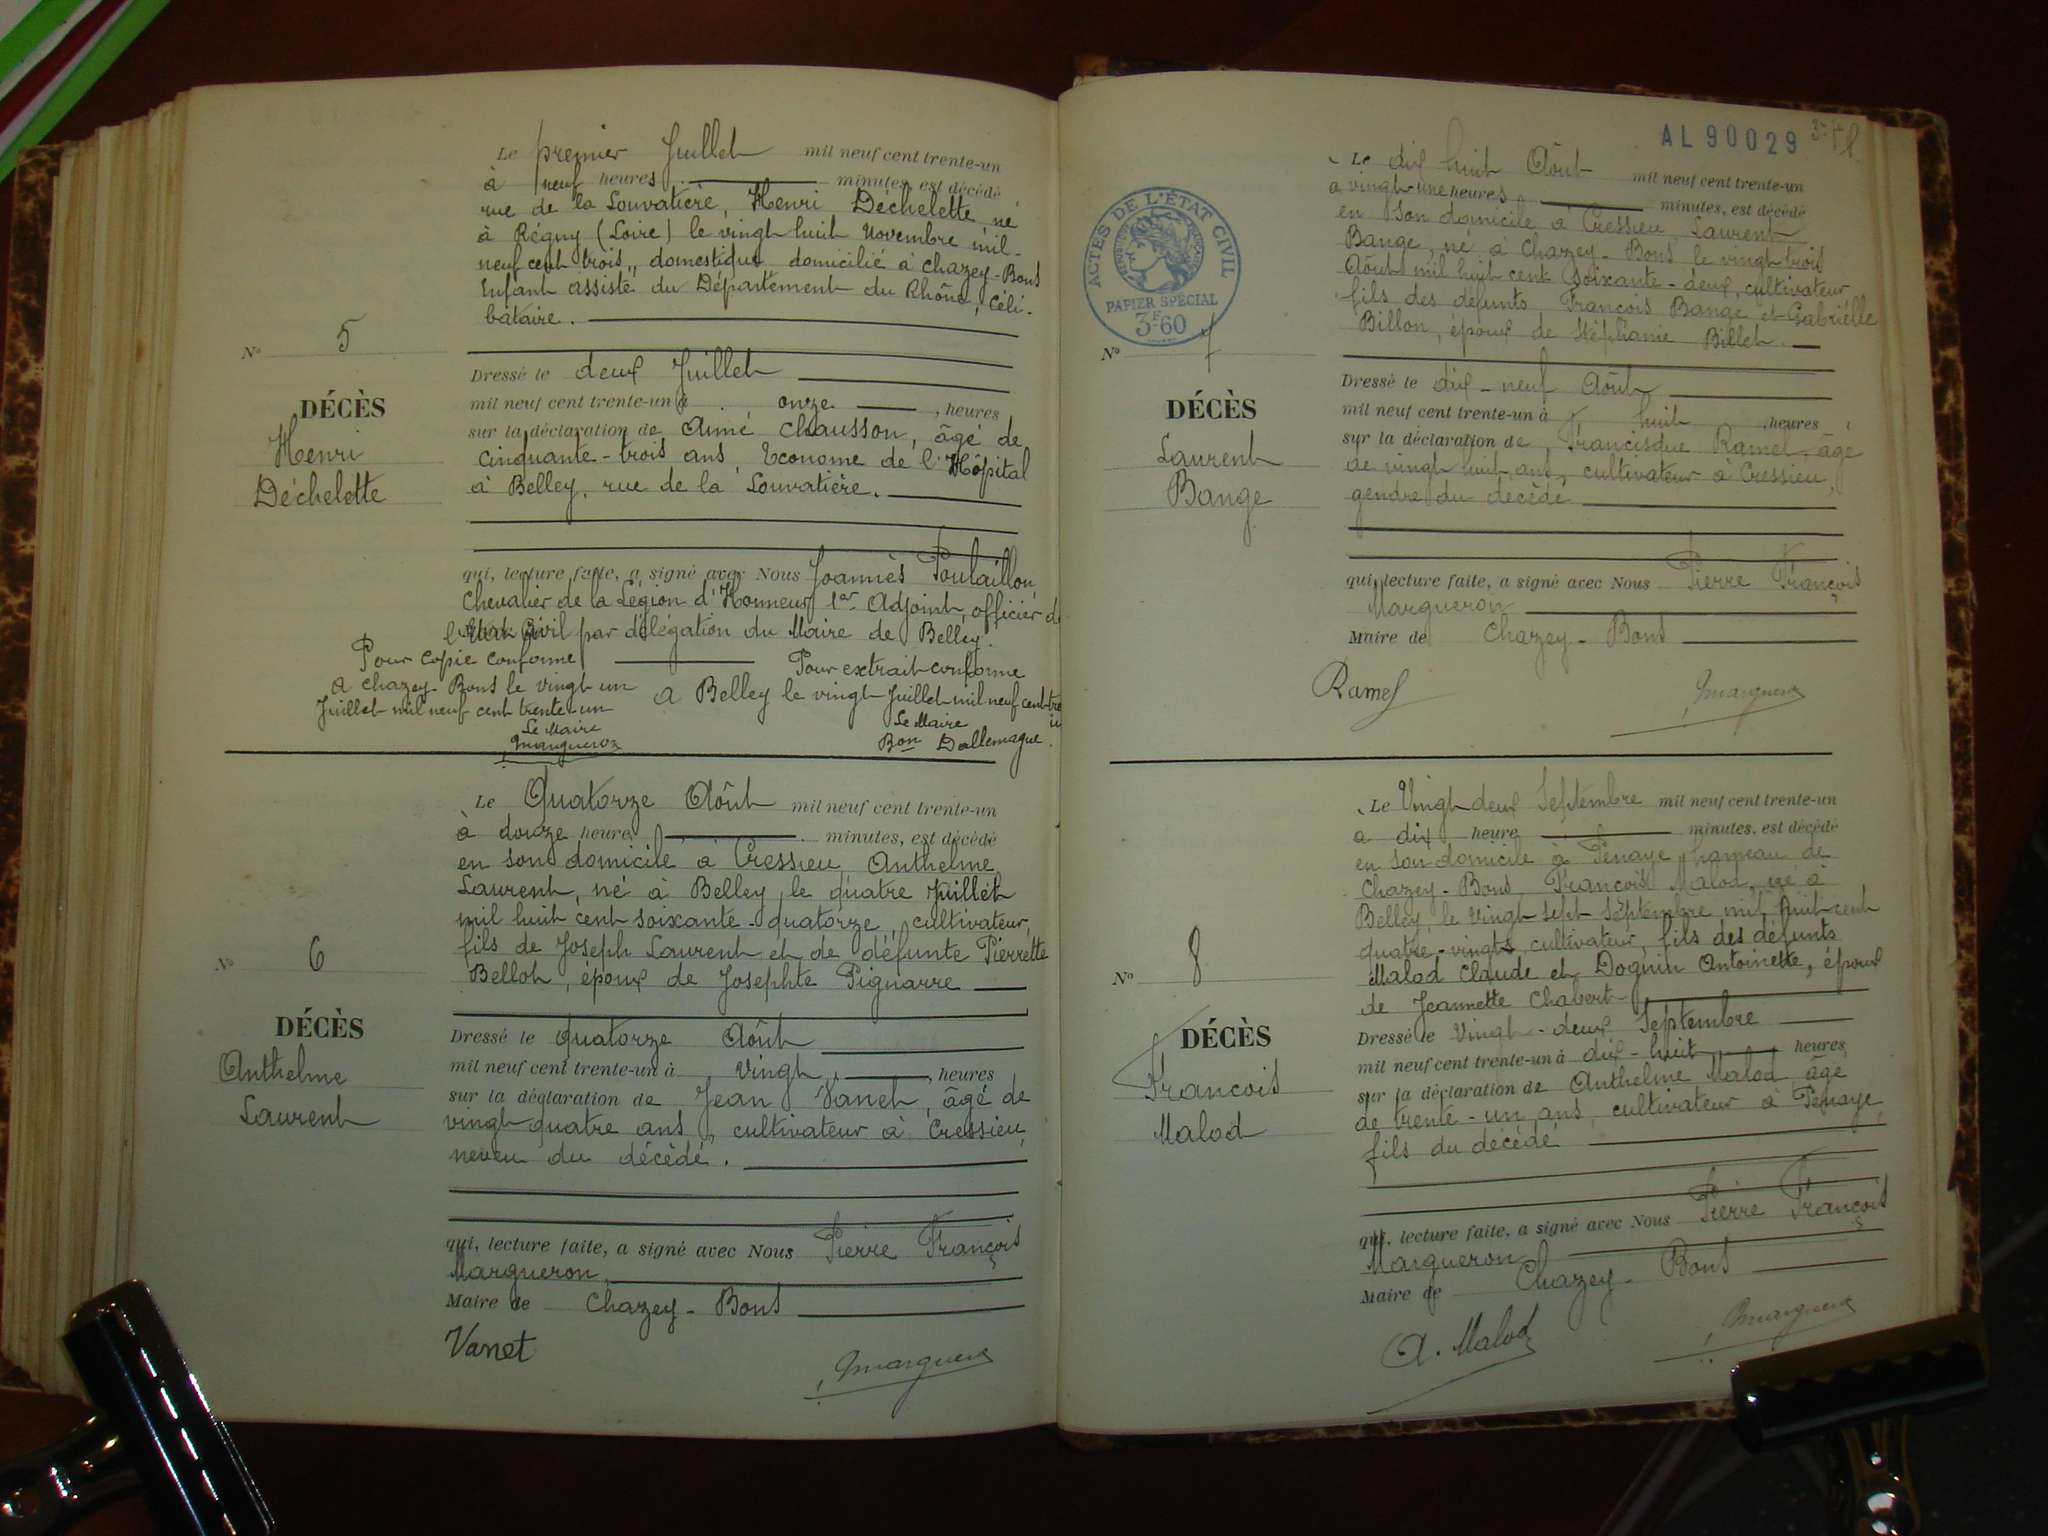 Le premier Juillet mil neuf cent trente-un
à neuf heures minutes, est décédé
rue de la Louvatière, Henri Déchelette, né
à Régny (Loire) le vingt huit Novembre mil
neuf cent trois, domestique domicilié à Chazey-Bons
Enfant assisté du Département du Rhône, Céli-
bataire.
N° 5
DÉCÈS
Henri
Déchelette
Dressé le deux Juillet
mil neuf cent trente-un à onze, heures
sur la déclaration de Aimé Chausson, âgé de
Cinquante-trois ans, Econome de l'Hôpital
à Belley, rue de la Louvatière.
qui, lecture faite, a signé avec Nous Joannès Poulaillon,
Chevalier de la Légion d'Honneur 1er Adjoint, officier de
l'Etat Civil par délégation du Maire de Belley.
Pour copie conforme
a Chazey-Bons le vingt un
Juillet mil neuf cent trente un
Le Maire
Margueron
Pour extrait conforme
a Belley le vingt Juillet mil neuf cent tre
Le Maire
Bon Dallemagne.
Le Quatorze Août mil neuf cent trente-un
à douze heure minutes, est décédé
en son domicile à Cressieu Anthelme
Laurent, né à Belley le quatre Juillet
mil huit cent soixante-quatorze, cultivateur,
fils de Joseph Laurent et de défunte Pierrette
Bellot, époux de Josephte Pignarre
N° 6
DÉCÈS
Anthelme
Laurent
Dressé le quatorze Août
mil neuf cent trente-un à vingt, heures
sur la déclaration de Jean Vanet, âgé de
vingt quatre ans, cultivateur à Cressieu,
neveu du décédé.
qui, lecture faite, a signé avec Nous Pierre François
Margueron,
Maire de Chazey-Bons
Vanet
Margueron
AL 90029
ACTES DE L'ÉTAT CIVIL
RÉPUBLIQUE FRANÇAISE
PAPIER SPÉCIAL
3F60
Le dix huit Août mil neuf cent trente-un
à vingt-une heures minutes, est décédé
en son domicile à Cressieu Laurent
Bange, né à Chazey-Bons le vingt trois
Août mil huit cent soixante-deux, cultivateur,
fils des défunts François Bange et Gabrielle
Billon, époux de Stéphanie Billet.
N° 7
DÉCÈS
Laurent
Bange
Dressé le dix-neuf Août
mil neuf cent trente-un à huit, heures
sur la déclaration de Francisque Ramel, âgé
de vingt huit ans, cultivateur à Cressieu,
gendre du décédé
qui, lecture faite, a signé avec Nous Pierre François
Margueron
Maire de Chazey-Bons
Ramel
Margueron
Le Vingt deux Septembre mil neuf cent trente-un
a dix heure minutes, est décédé
en son domicile à Penaye hameau de
Chazey-Bons François Malod, né à
Belley, le vingt sept Septembre mil huit cent
quatre-vingts, cultivateur, fils des défunts
Malod Claude et Dognin Antoinette, époux
de Jeannette Chabert
N° 8
DÉCÈS
Francois
Malod
Dressé le Vingt-deux Septembre
mil neuf cent trente-un à dix-huit, heures
sur la déclaration de Anthelme Malod âgé
de trente-un ans, cultivateur à Penaye,
fils du décédé
qui, lecture faite, a signé avec Nous Pierre François
Margueron
Maire de Chazey-Bons
A. Malod
Margueron